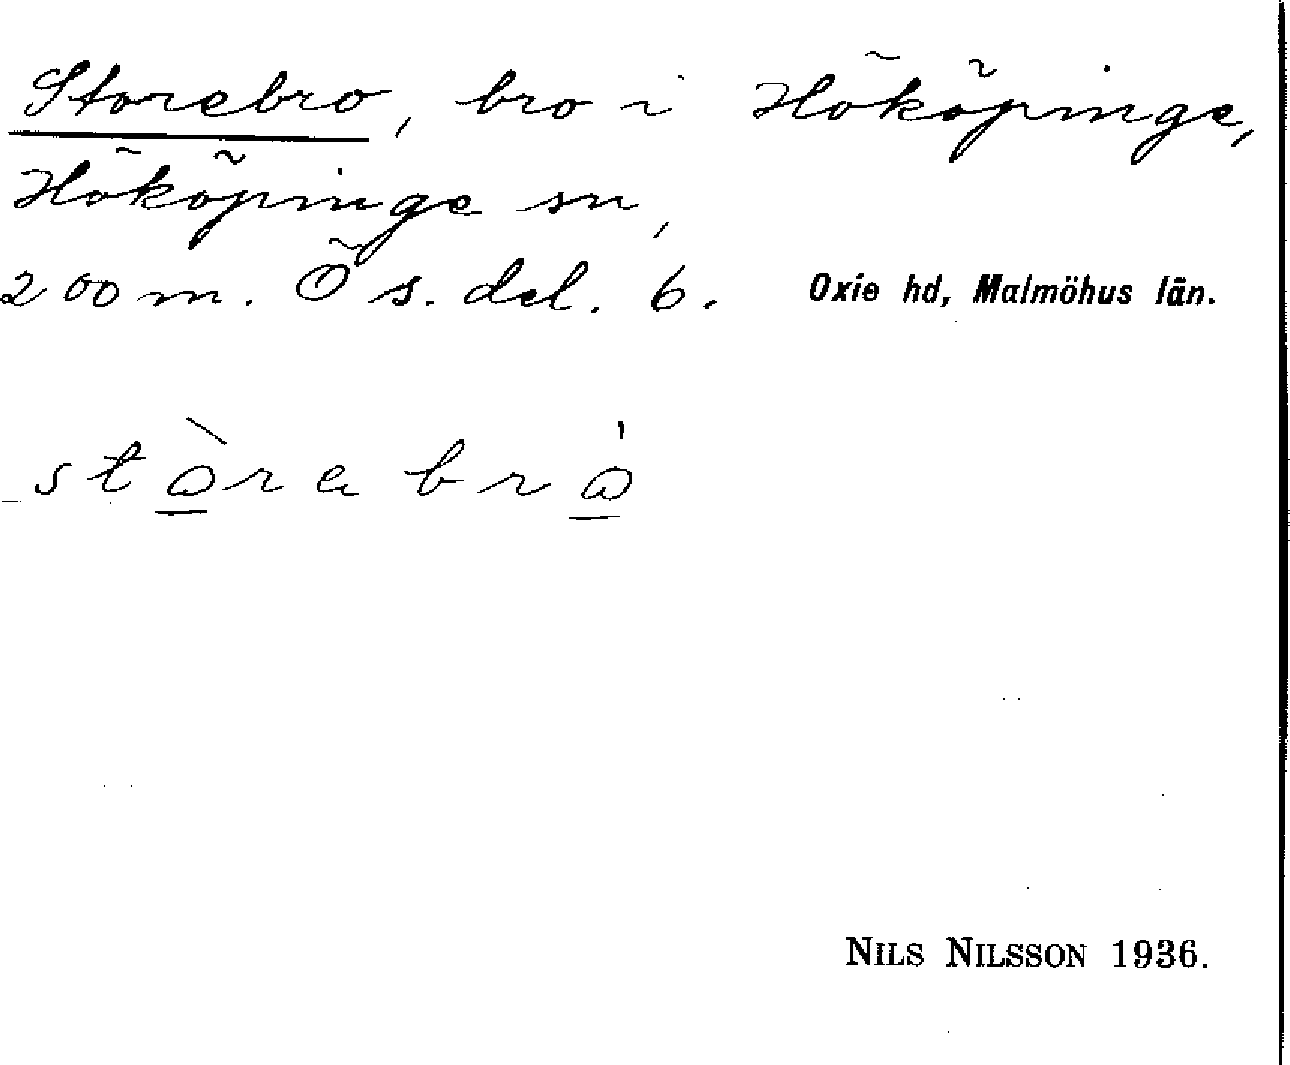 Storebro, bro i Hököpinge,
Hököpinge sn,
200 m. Ö s. del. 6. Oxie hd, Malmöhus län.
stòrabró
NILS NILSSON 1936.